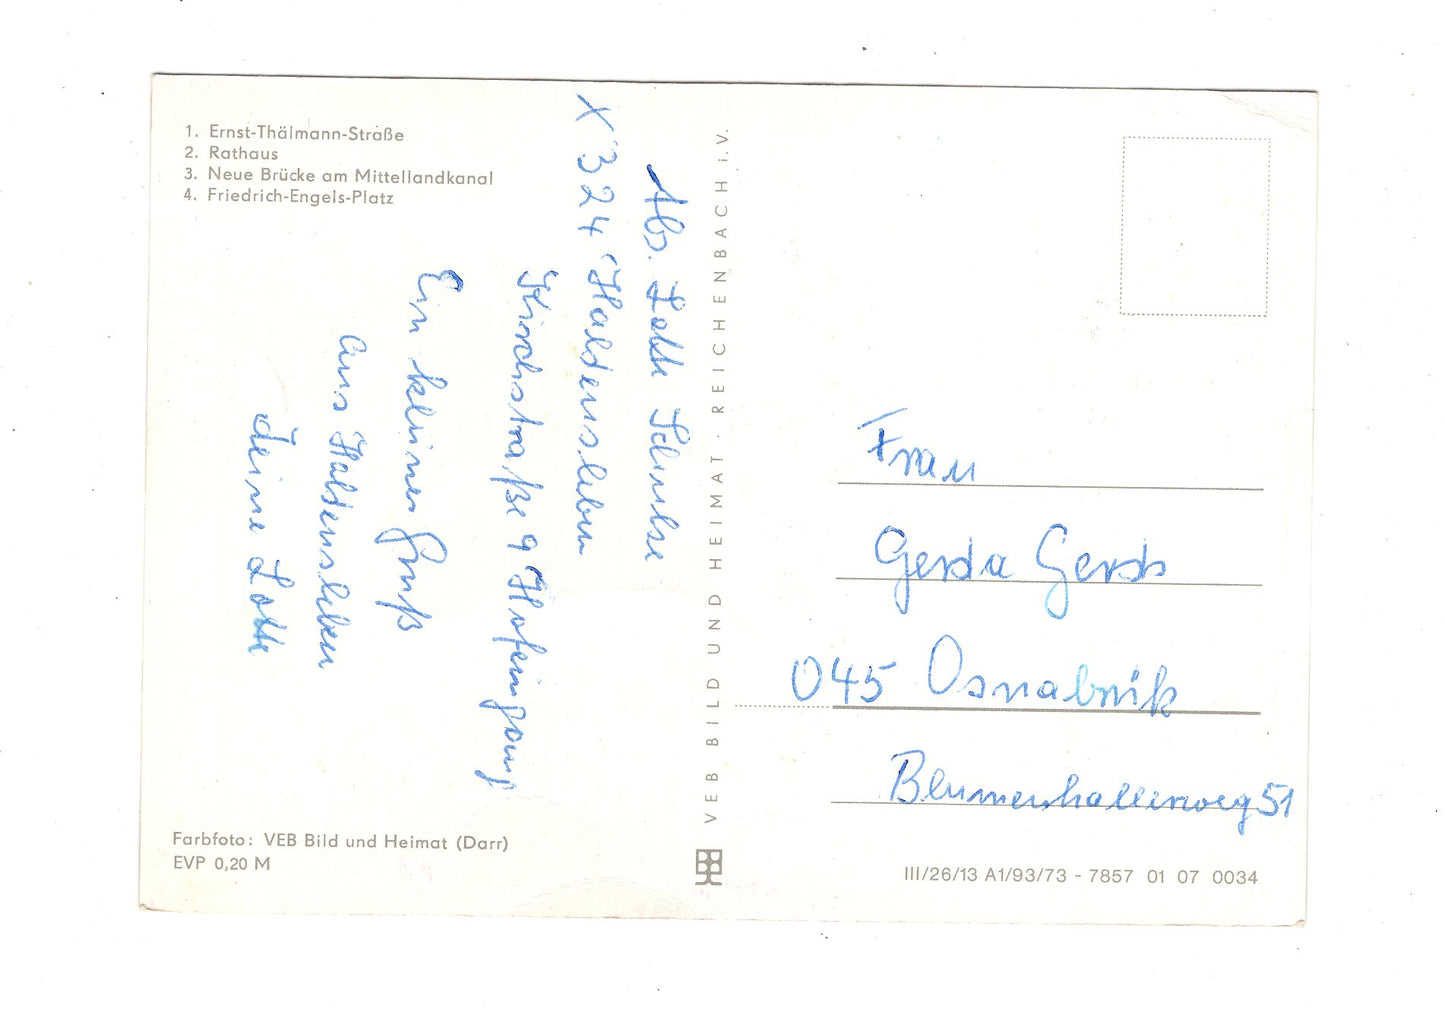 1. Ernst-Thälmann-Straße
2. Rathaus
3. Neue Brücke am Mittellandkanal
4. Friedrich-Engels-Platz
Abs. Lotte Schulse
X 324 Haldensleben
Kirchstraße 9 Hofeingang
Ein kleiner Gruß
aus Haldensleben
Deine Lotte
Farbfoto: VEB Bild und Heimat (Darr)
EVP 0,20 M
VEB BILD UND HEIMAT · REICHENBACH i. V.
Frau
Gerda
045 Osnabrük
Blumenhallerweg 51
III/26/13 A1/93/73 - 7857 01 07 0034